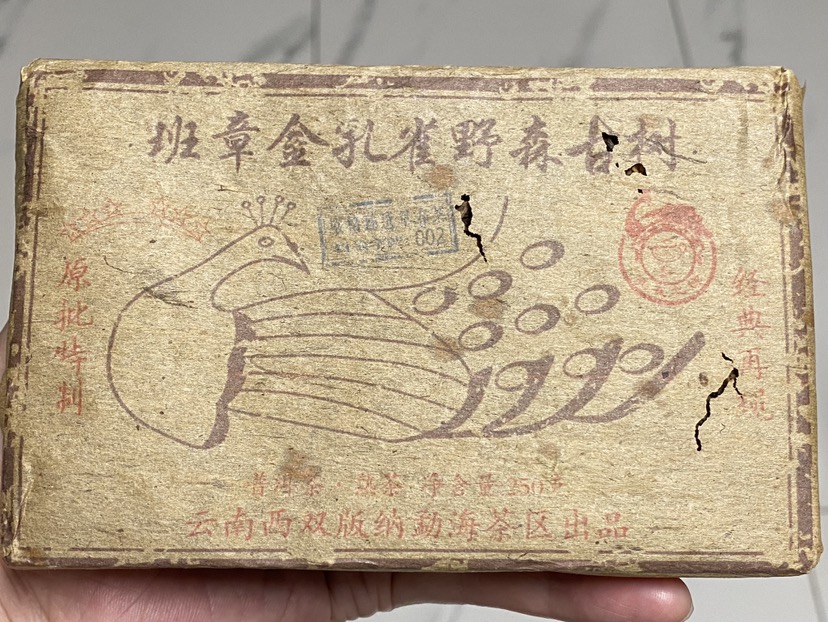 班章金孔雀野森古树
002
原批特制
经典再现
普洱茶 熟茶 净含量 250克
云南西双版纳勐海茶区出品